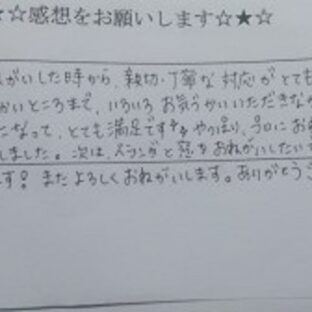 ☆☆感想をお願いします☆★☆
がいした時から、親切・丁寧な対応がとても
かいところまで、いろいろお気づかいいただきな
になって、とても満足です やっぱり、プロにお
しました。次は、ベランダと窓をおねがいしたい
す! またよろしくおねがいします。ありがとうご